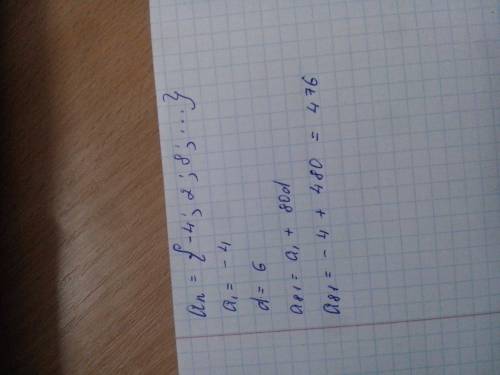 an = {-4; 2; 8; ...}
a₁ = -4
d = 6
a₈₁ = a₁ + 80d
a₈₁ = -4 + 480 = 476